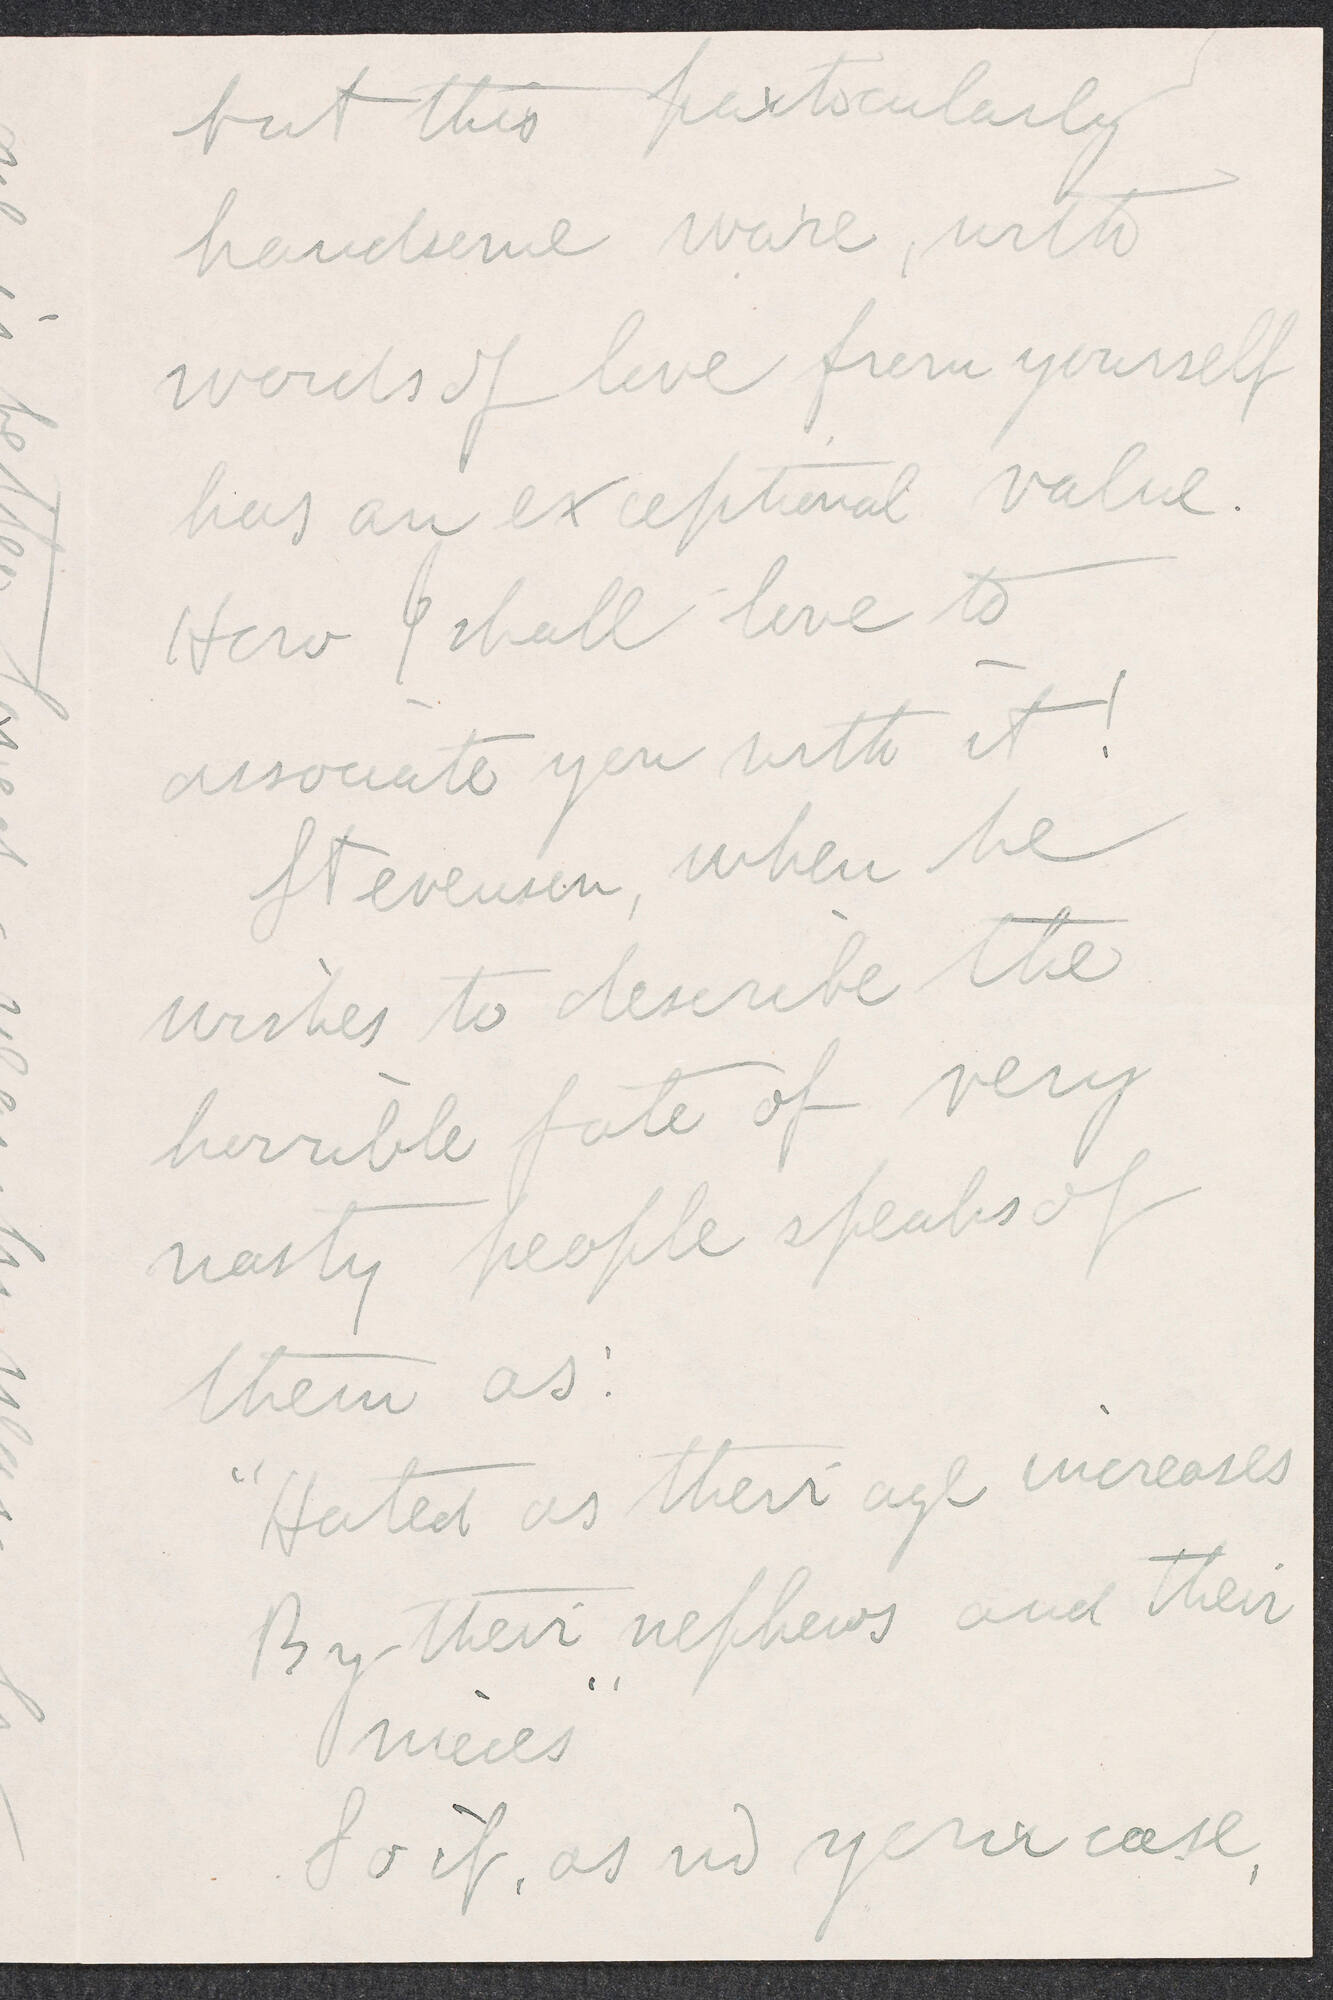 but this particularly
handsome ware, with
words of love from yourself
has an exceptional value.
How I shall love to
associate you with it!
Stevenson, when he
wishes to describe the
horrible fate of very
nasty people speaks of
them as:
"Hated as their age increases
By their nephews and their
nieces"
So if, as in your case,